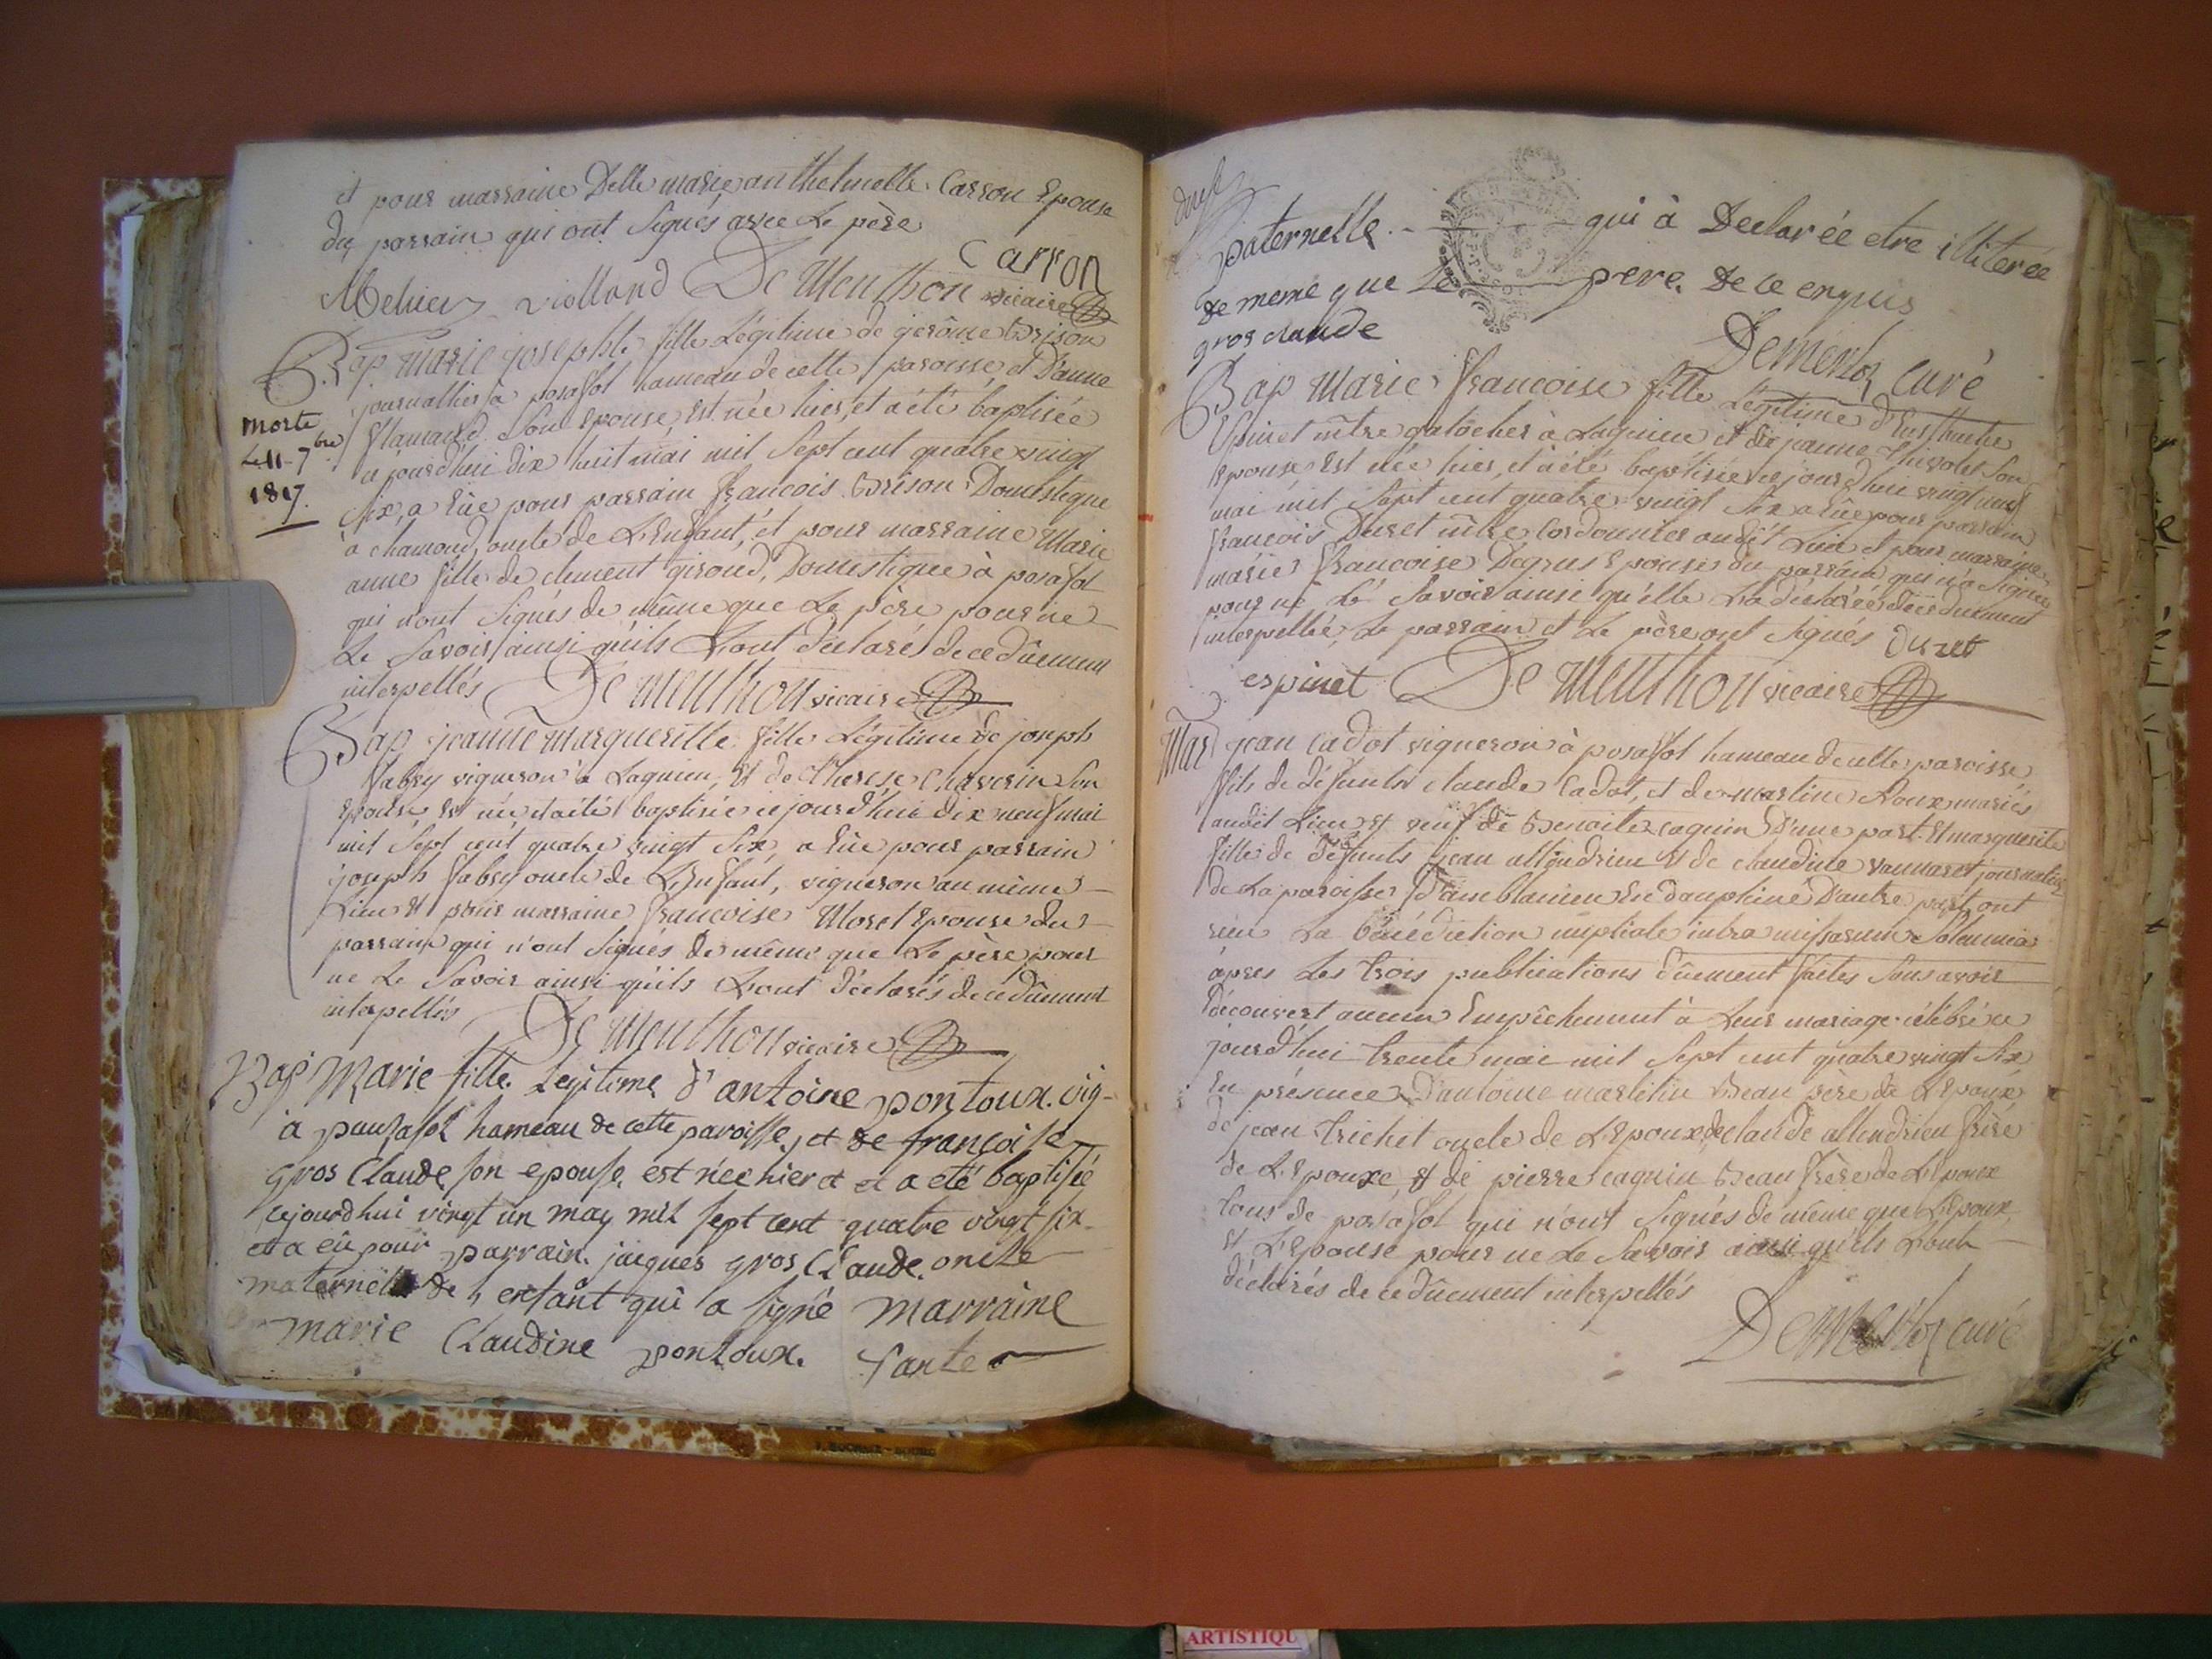 et pour marraine Delle marie anthelmette Carron Epouse
du parrain qui ont signés avec Le père
Carron
Mehier Violland De Menthon vicaire
Bap marie josephte fille Légitime de jerôme Brison
journallier à posafol hameau de cette paroisse, et D'anne
flamand Son Epouse, est née hier, et a été baptisée
morte
Le 11 7bre
1817.
cejourd'hui dix huit mai mil Sept cent quatre vingt
Six, a Eüe pour parrain francois Brison Domestique
à chamond, oncle de L'Enfant, et pour marraine Marie
anne fille de clement giroud, Domestique à posafol
qui n'ont signés de même que Le père pour ne
Le Savoir, ainsi qu'ils L'ont déclarés de ce dûement
interpellés De Menthon vicaire
Bap jeanne margueritte fille Légitime de joseph
fabry vigneron à Lagnieu, Et de therese Chaverin Son
Epouse Est née, et a été baptisée cejourd'hui dix neuf mai
mil Sept cent quatre vingt Six, a Eüe pour parrain
joseph fabry oncle de L'Enfant, vigneron au même
Lieu et pour marraine francoise Moret Epouse du
parrain qui n'ont signés de même que Le père pour
ne Le Savoir ainsi qu'ils L'ont déclarés de ce dûement
interpellés De Menthon vicaire
Bap Marie fille Legitime d'antoine pontoux vig-
à pausafol hameau de cette paroisse, et de françoise
gros Claude son epouse, est née hier et a eté baptisée
cejourdhui vingt un may mil sept cent quatre vingt six
et a eü pour parrain jacques gros Claude oncle
maternel de l'enfant qui a signé marraine
marie Claudine pontoux tante
paternelle qui à Declarée etre illiterée
de meme que Le pere de ce enquis
gros claude
Dementhz Curé
Bap Marie francoise fille Légitime d'Eustache
Epinet mtre à Lagnieu et de jeanne Son
Epouse, Est née hier, et a été baptisée cejourd'hui vingt neuf
mai mil Sept cent quatre vingt Six a Eüe pour parrain
francois Duret mtre Cordonnier audit Lieu et pour marraine
marie francoise Degrus Epouse du parrain qui n'a Signée
pour ne Le Savoir ainsi qu'elle L'a déclarée de ce duement
interpellée, Le parrain et Le père ont signés Duret
espinet De Menthon vicaire
Mar jean Cadot vigneron à posafol hameau de cette paroisse
fils de défunts claude Cadot, et de martine Roux mariés
audit Lieu et veuf de Benoite caquin D'une part, Et marguerite
fille de défunts jean allendrieu et de claudine
de La paroisse D'amblanieu En dauphiné D'autre part, ont
reçu La bénédiction nuptiale intra missarum Solemnia
àpres Les trois publications dûement faites Sans avoir
découvert aucun Empêchement à Leur mariage célébré ce
jourd'hui trente mai mil Sept cent quatre vingt Six
En présence D'antoine Beau père de L'Epoux
de jean trichet oncle de L'Epoux, de claude allendrieu frère
de L'Epouxe, et de pierre caquin Beau frère de L'Epoux
tous de posafol qui n'ont signés de même que L'Epoux,
et L'Epouse pour ne Le Savoir ainsi qu'ils L'ont
déclarés de ce dûement interpellés
Dementhz curé
ARTISTIQU